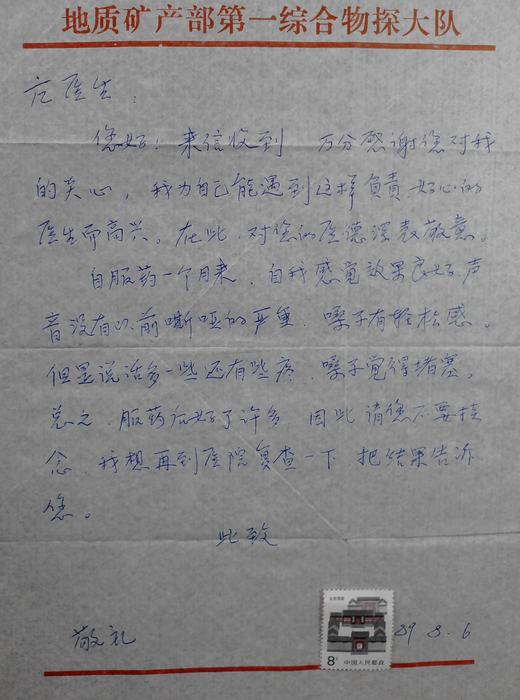 地质矿产部第一综合物探大队
医生：
您好！来信收到 万分感谢您对我
的关心，我为自己能遇到这样负责好心的
医生而高兴。在此，对您的医德深表敬意。
自服药一个月来，自我感觉效果良好，声
音没有以前嘶哑的严重，嗓子有轻松感。
但是说话多一些还有些疼，嗓子觉得堵塞。
总之，服药后好了许多 因此请您不要挂
念，我想再到医院复查一下 把结果告诉
您。
此致
敬礼
89 8. 6
8分 中国人民邮政